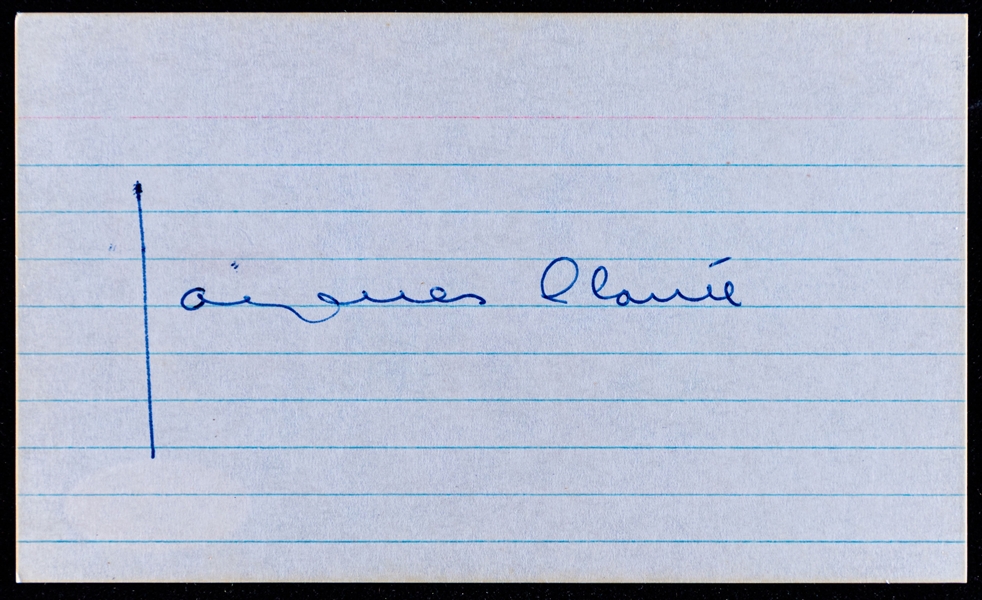 Jacques Plante